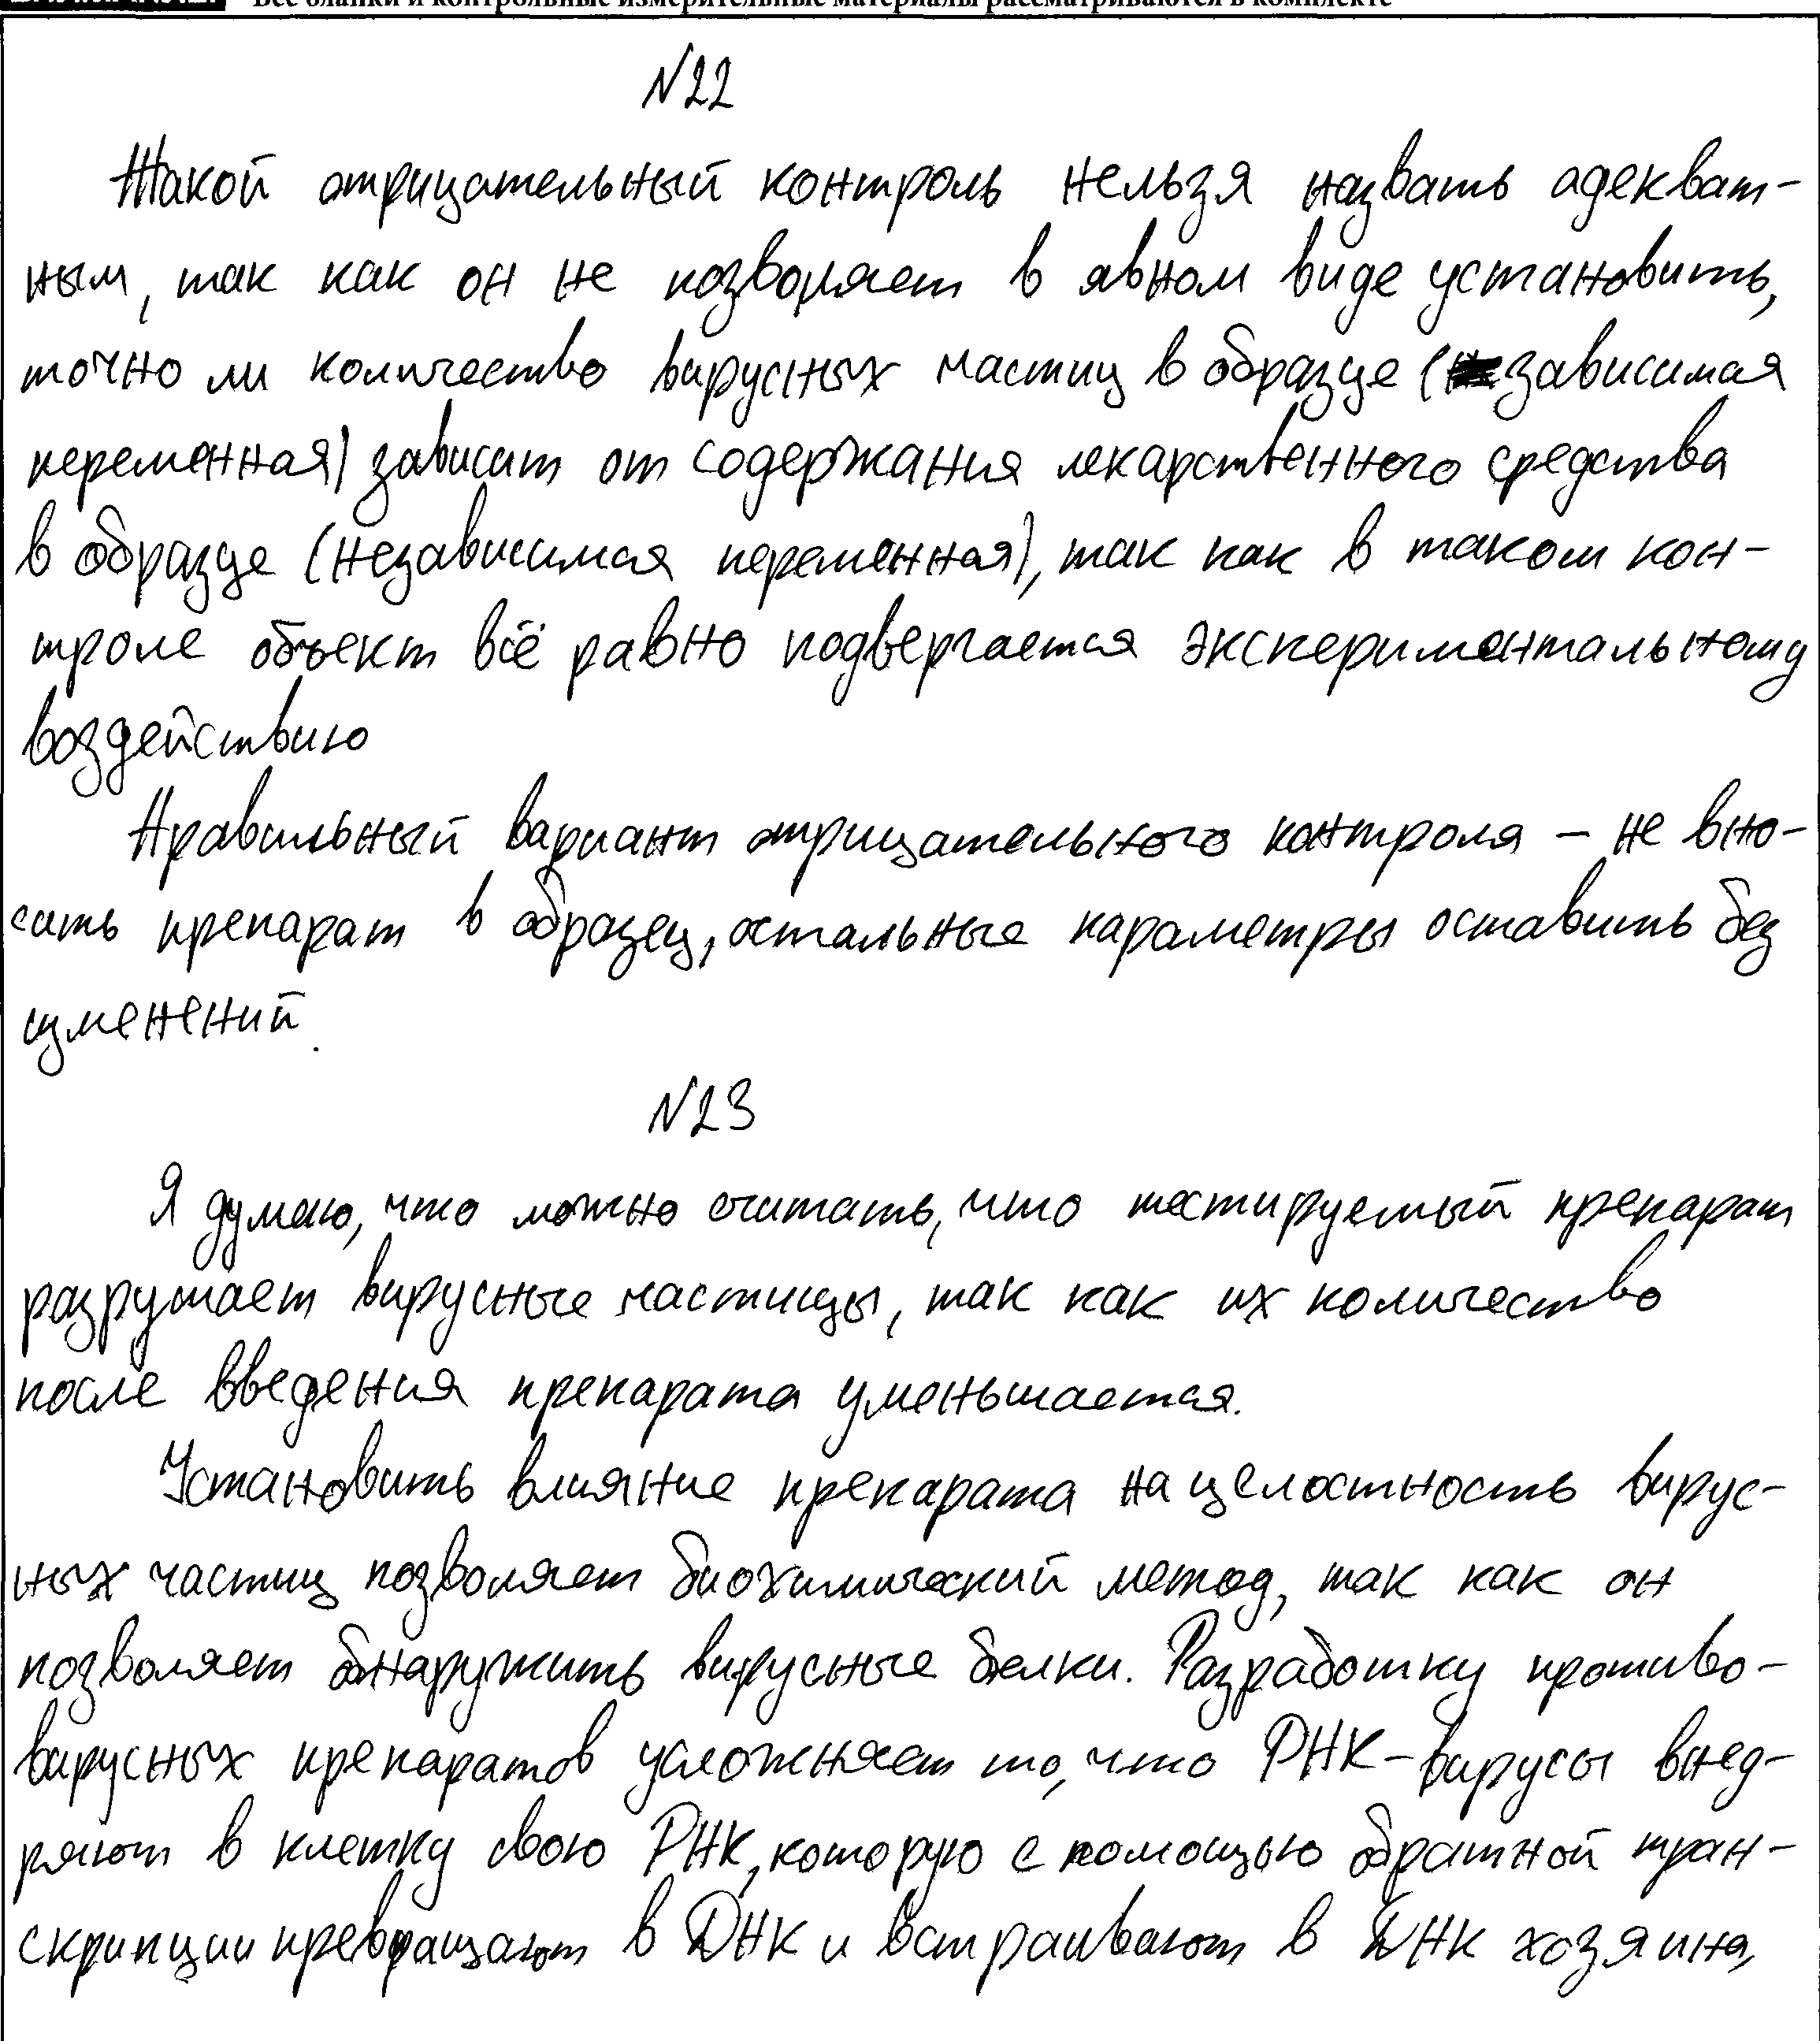 Все бланки и контрольные измерительные материалы рассматриваются в комплекте
№22
Такой отрицательный контроль нельзя назвать адекват-
ным, так как он не позволяет в явном виде установить,
точно ли количество вирусных частиц в образце (зависимая
переменная) зависит от содержания лекарственного средства
в образце (независимая переменная), так как в таком кон-
троле объект всё равно подвергается экспериментальному
воздействию
Правильный вариант отрицательного контроля – не вно-
сить препарат в образец, остальные параметры оставить без
изменений.
№23
Я думаю, что можно считать, что тестируемый препарат
разрушает вирусные частицы, так как их количество
после введения препарата уменьшается.
Установить влияние препарата на целостность вирус-
ных частиц позволяет биохимический метод, так как он
позволяет обнаружить вирусные белки. Разработку противо-
вирусных препаратов усложняет то, что РНК-вирусы внед-
ряют в клетку свою РНК, которую с помощью обратной тран-
скрипции превращают в ДНК и встраивают в ДНК хозяина,